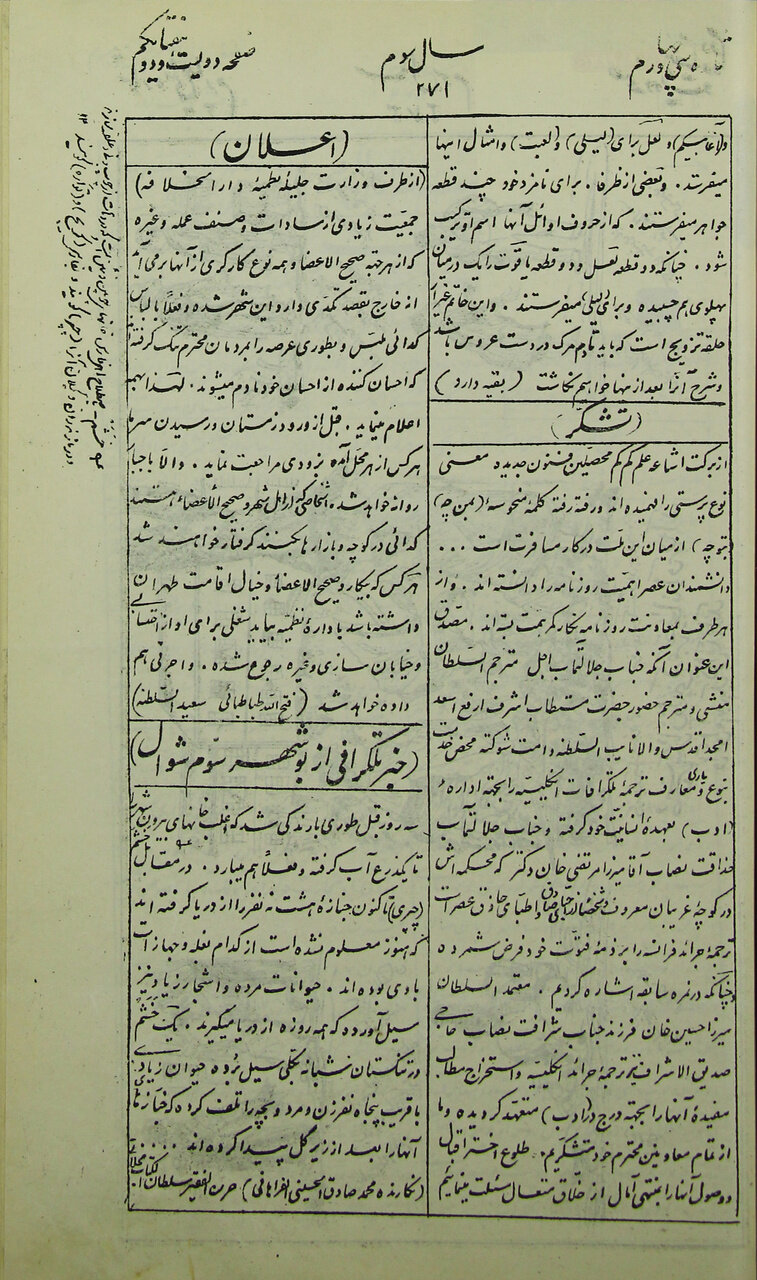 سال سوم
۲۷۱
صفحه دویست و دوم
و (آغا بیگم) و لعل برای (لیلی) و (لعبت) و امثال اینها
میفرستد . و بعضی از ظرفا . برای نامزد خود چند قطعه
جواهر میفرستند . که از حروف اوائل آنها اسم او ترکیب
شود . چنانکه دو قطعه لعل و دو قطعه یاقوت را یک درمیان
پهلوی هم چسبیده و برای لیلی میفرستند . و این خاتم غیر از
حلقه تزویج است که باید تا دم مرگ در دست عروس باشد
و شرح آنرا بعد از اینها خواهیم نگاشت (بقیه دارد)
(تشکر)
از برکت اشاعه علم کم کم محصلین فنون جدیده معنی
نوع پرستی را فهمیده اند و رفته رفته کلمه منحوسه (بمن چه)
(بتو چه) از میان این ملت در کار مسافرت است ...
دانشمندان عصر اهمیت روزنامه را دانسته اند . و از
هر طرف بمعاونت روزنامه نگار کمر همت بسته اند . مصدق
این عنوان آنکه جناب جلالتمآب اجل مترجم السلطان
منشی و مترجم حضور حضرت مستطاب اشرف ارفع اسعد
امجد اقدس والا نایب السلطنه دامت شوکته محض خدمت
بنوع و یاری معارف ترجمه تلگرافات انگلیسیه را بجهة اداره
(ادب) بعهده انسانیت خود گرفته و جناب جلالتمآب
حذاقت نصاب آقا میرزا مرتضی خان دکتر که محکمه اش
در کوچه غریبان معروف و شخصا از اطبای حاذق عصر است
ترجمه جرائد فرانسه را بر ذمه فتوت خود فرض شمرده
چنانکه در نمره سابقه اشاره کردیم . معتمد السلطان
میرزا حسین خان فرزند جناب شرافت نصاب حاجی
صدیق الاشراف نیز ترجمه جرائد انگلیسیه و استخراج مطالب
مفیده آنها را بجهة درج در (ادب) متعهد گردیده و ما
از تمام معاونین محترم خود متشکریم . طلوع اختر اقبال
و وصول آنها را بمنتهی آمال از خلاق متعال مسئلت مینمائیم
(اعلان)
(از طرف وزارت جلیله نظمیه دار الخلافه)
جمعیت زیادی از سادات و صنف عمله و غیره
که از هر جهة صحیح الاعضا و همه نوع کارگری از آنها برمی آید
از خارج بقصد تکدی وارد این شهر شده و فعلا بالباس
گدائی ملبس و بطوری عرصه را بمردمان محترم تنگ گرفته
که احسان کننده از احسان خود نادم میشوند . لهذا بهمه
اعلام مینماید . قبل از ورود زمستان و رسیدن سرما
هر کس از هر محل آمده بزودی مراجعت نماید . والا باجبار
روانه خواهد شد و اشخاصی که از اهل شهر و صحیح الاعضاء هستند
گدائی در کوچه و بازارها بکنند گرفتار خواهند شد
هر کس که بیکار و صحیح الاعضا و خیال اقامت طهران
داشته باشد باداره نظمیه بیاید شغلی برای او از
و خیابان سازی و غیره رجوع شده . و اجرتی هم
داده خواهد شد (فتح الله طباطبائی سعید السلطنه)
(خبر تلگرافی از بوشهر سوم شوال)
سه روز قبل طوری بارندگی شد که اغلب خانهای بیرون شهر
تا یکذرع آب گرفته و فعلا هم میبارد . در مقابل
(چبری) تا کنون جنازه هشت نه نفر را از دریا گرفته اند
که هنوز معلوم نشده است از کدام بغله و جهازات
بادی بوده اند . حیوانات مرده و اشجار زیاد نیز
سیل آورده که همه روزه از دریا میگیرند . یک چشم
در تنگستان شبانه بکلی سیل برده حیوان زیادی
با قریب پنجاه نفر زن و مرد و بچه را تلف کرده که جنازهای
آنها را بعد از زیر گل پیدا کرده اند ....
(نگارنده محمد صادق الحسینی الفراهانی) حرره الفقیر سلطان الکتاب